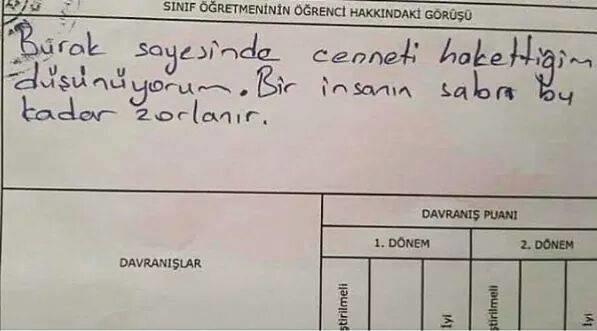 SINIF ÖĞRETMENİNİN ÖĞRENCİ HAKKINDAKİ GÖRÜŞÜ
Burak sayesinde cenneti hakettiğim
düşünüyorum. Bir insanın sabrı bu
kadar zorlanır.
DAVRANIŞ PUANI
1. DÖNEM 2. DÖNEM
DAVRANIŞLAR
ştirilmeli
İyi
ştirilmeli
İyi